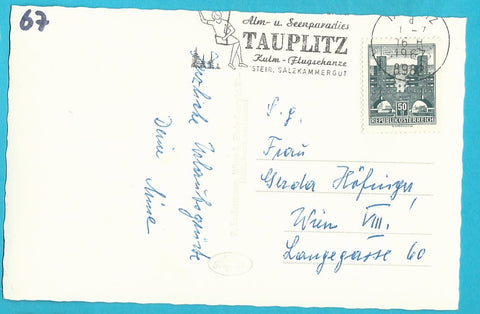 67
Alm- u. Seenparadies
TAUPLITZ
Kulm - Flugschanze
STEIR. SALZKAMMERGUT
1967
50
REPUBLIK ÖSTERREICH
Herzliche Urlaubsgrüße
Deine
S. g.
Frau
Gerda Höfinger,
Wien VIII.
Langegasse 60